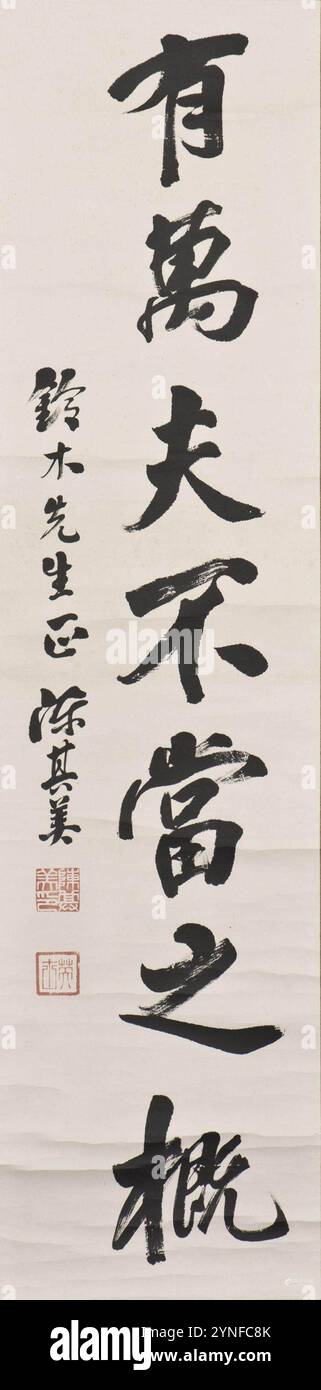 有萬夫不當之概
鈴木先生正 陳其美
陳其美印
英士
alamy
Image ID: 2YNFC8K
www.alamy.com